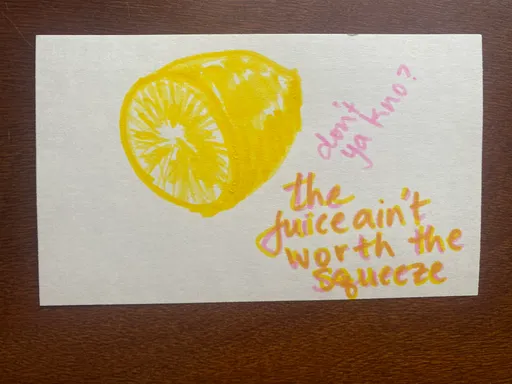 don't
ya kno?
the
juice ain't
worth the
squeeze